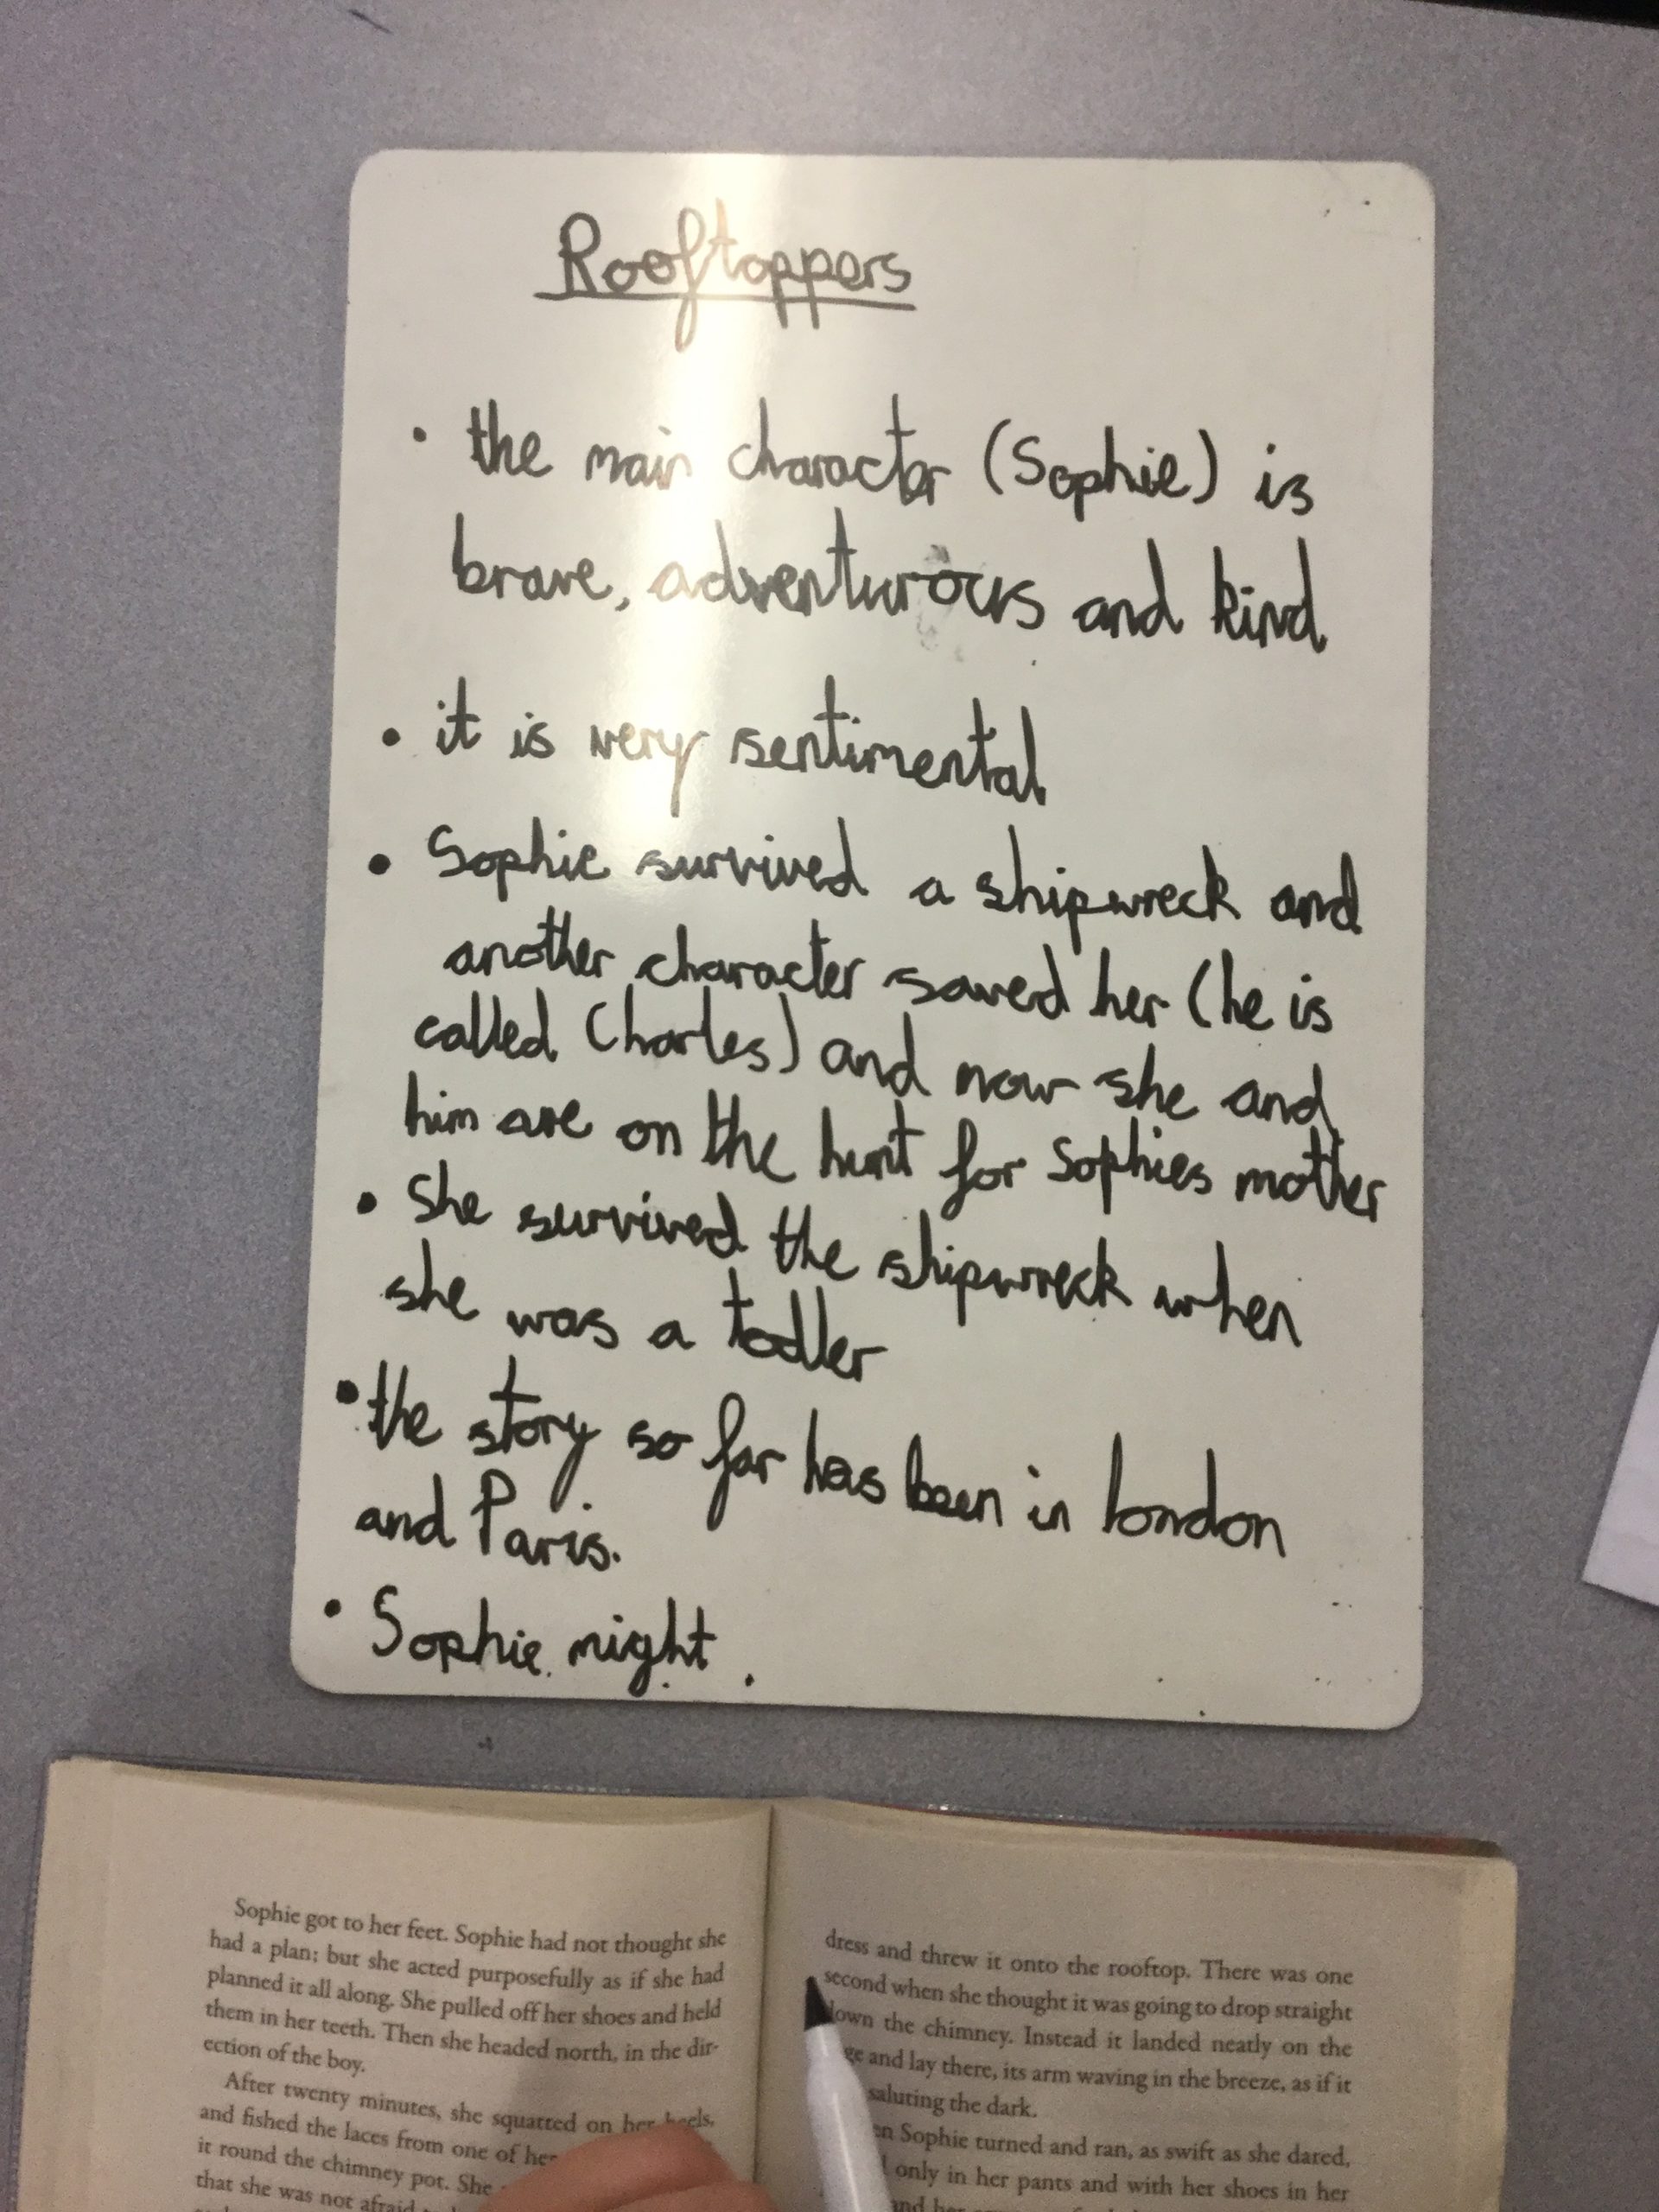 Rooftoppers
• the main character (Sophie) is
brave, adventurous and kind
• it is very sentimental
• Sophie survived a shipwreck and
another character saved her (he is
called Charles) and now she and
him are on the hunt for Sophies mother
• She survived the shipwreck when
she was a todler
• the story so far has been in london
and Paris.
• Sophie might
Sophie got to her feet. Sophie had not thought she
had a plan; but she acted purposefully as if she had
planned it all along. She pulled off her shoes and held
them in her teeth. Then she headed north, in the dir-
ection of the boy.
After twenty minutes, she squatted on her heels,
and fished the laces from one of her
it round the chimney pot. She
that she was not afraid
dress and threw it onto the rooftop. There was one
second when she thought it was going to drop straight
down the chimney. Instead it landed neatly on the
and lay there, its arm waving in the breeze, as if it
saluting the dark.
Sophie turned and ran, as swift as she dared,
only in her pants and with her shoes in her
and her